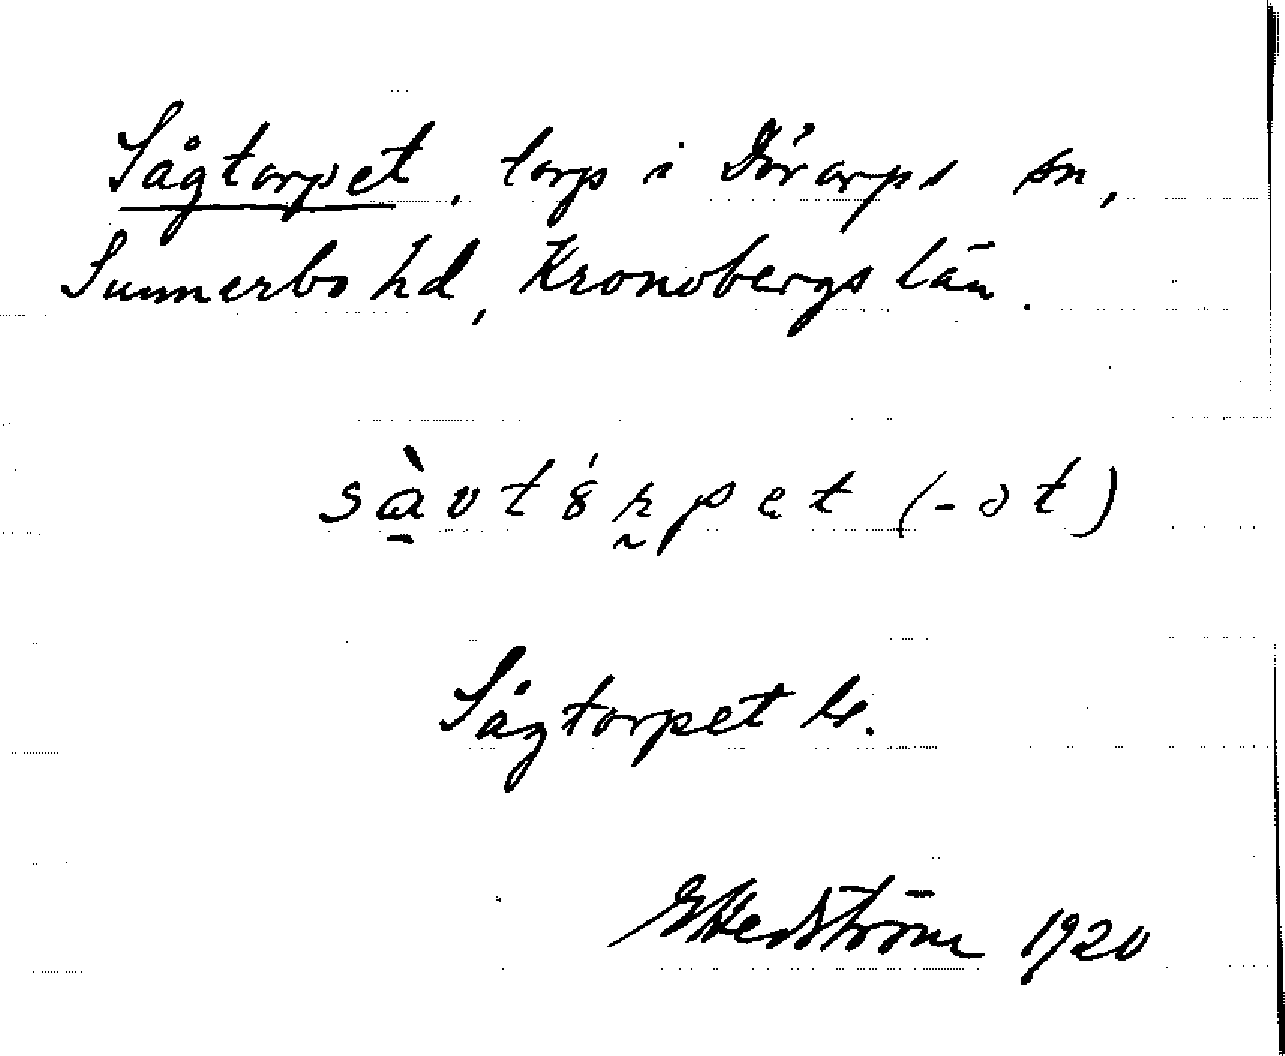 Sågtorpet, torp i Dörarps sn,
Sunnerbo hd, Kronobergs län.
sàvtórpet (-ət)
Sågtorpet
E Hedström 1920